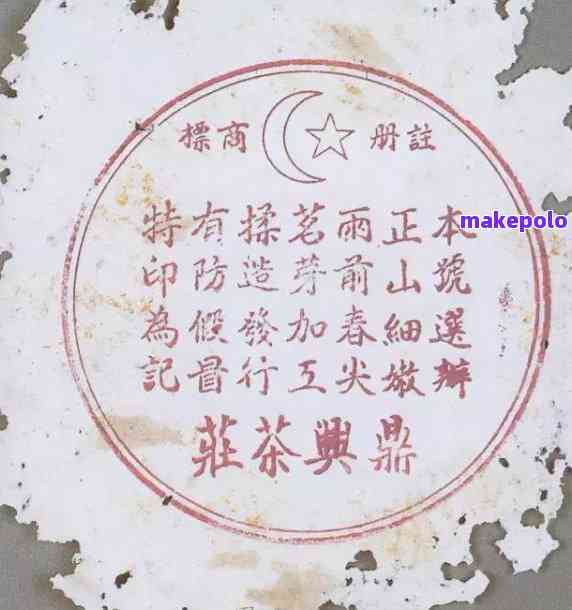 註册商標
本號選辦
正山細嫩
雨前春尖
茗芽加工
揉造發行
有防假冒
特印為記
鼎興茶莊
makepolo